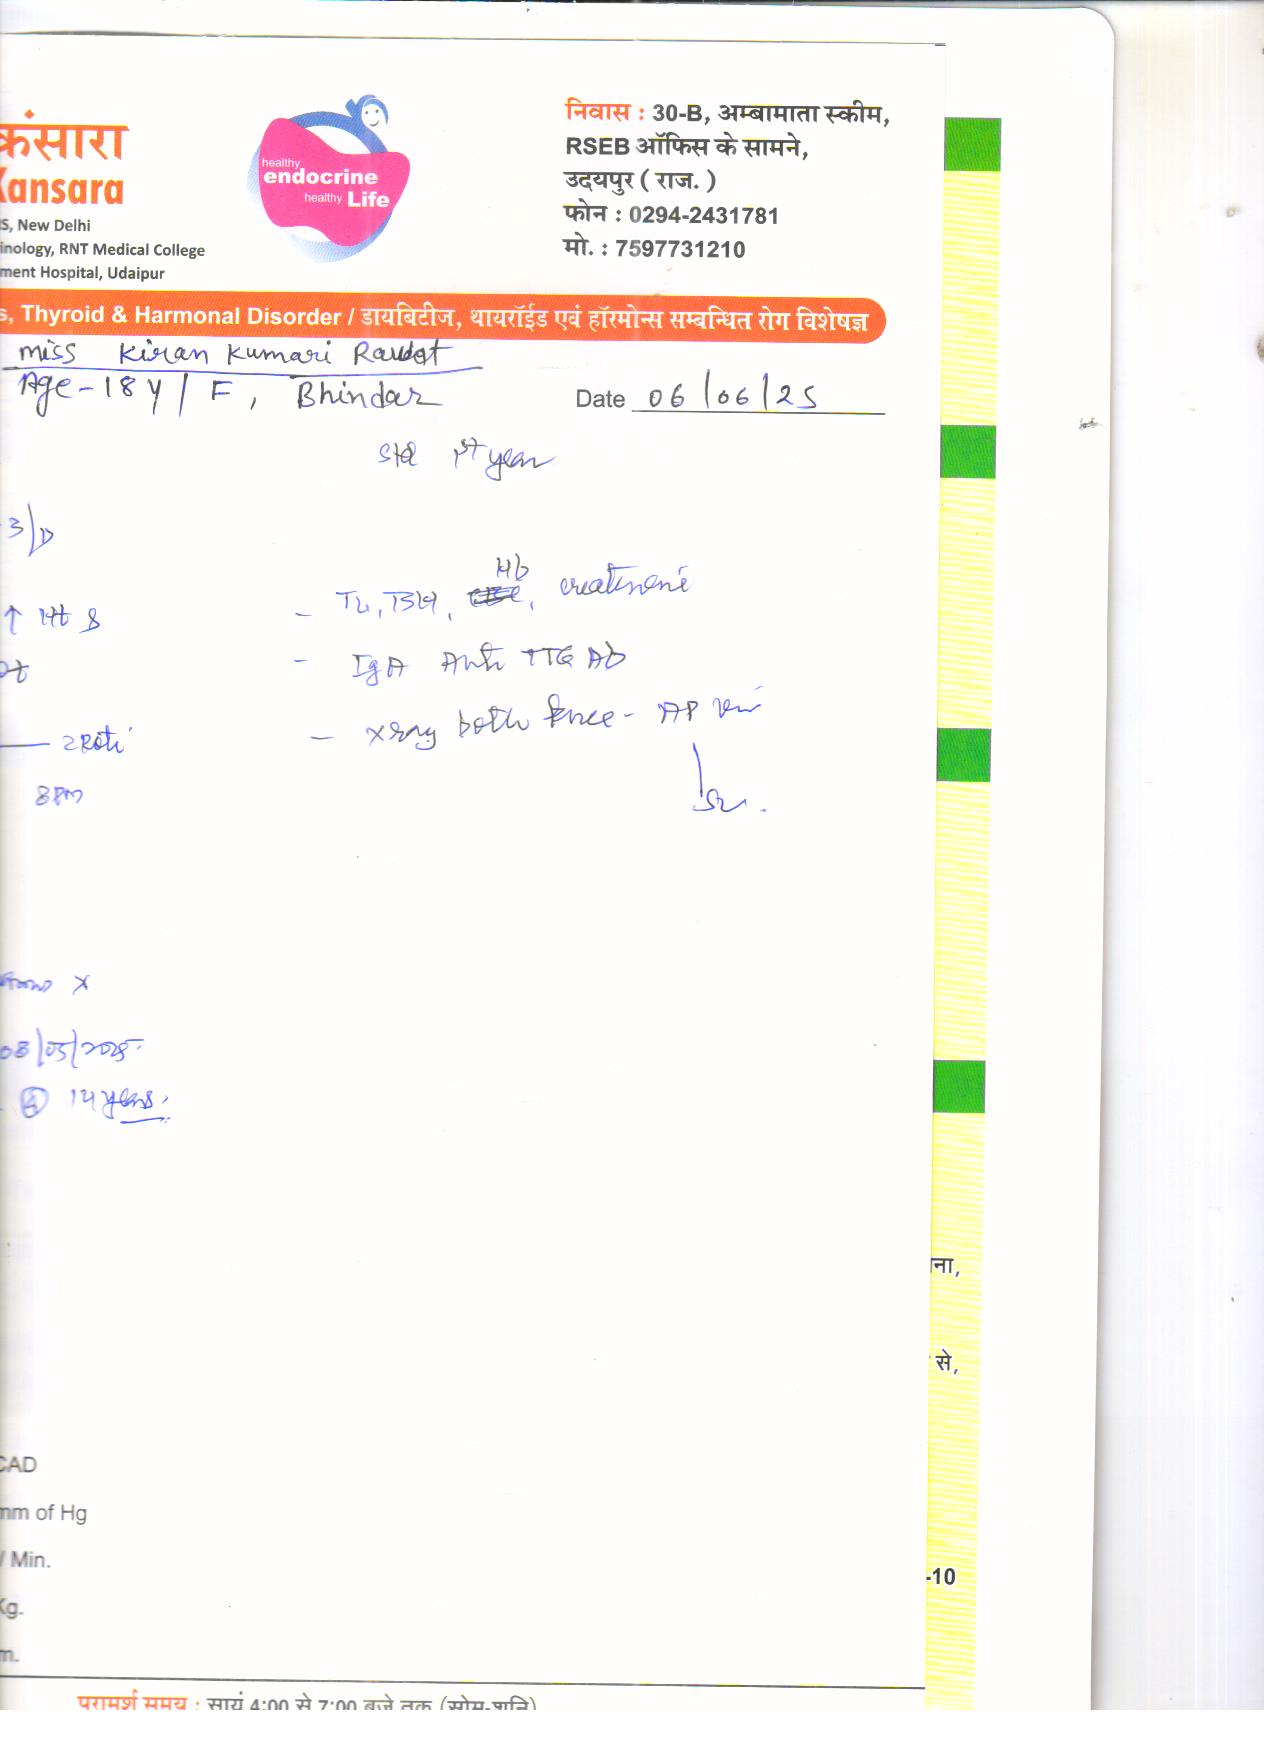 कंसारा
Kansara
S, New Delhi
inology, RNT Medical College
ment Hospital, Udaipur
healthy
endocrine
healthy Life
निवास : 30-B, अम्बामाता स्कीम,
RSEB ऑफिस के सामने,
उदयपुर ( राज. )
फोन : 0294-2431781
मो. : 7597731210
s, Thyroid & Harmonal Disorder / डायबिटीज, थायरॉईड एवं हॉरमोन्स सम्बन्धित रोग विशेषज्ञ
miss Kiran Kumari
Age - 18 Y / F, Bhindar
Date 06/06/25
1st year
3/D
↑ Ht
- T4, TSH, Hb, creatinine
- IgA Anti TTG Ab
- xray both knee - AP view
2 Roti
8 PM
x
08/05/2025
14 years.
ना,
से,
CAD
mm of Hg
/ Min.
-10
Kg.
m.
परामर्श समय : सायं 4:00 से 7:00 बजे तक (सोम-शनि)